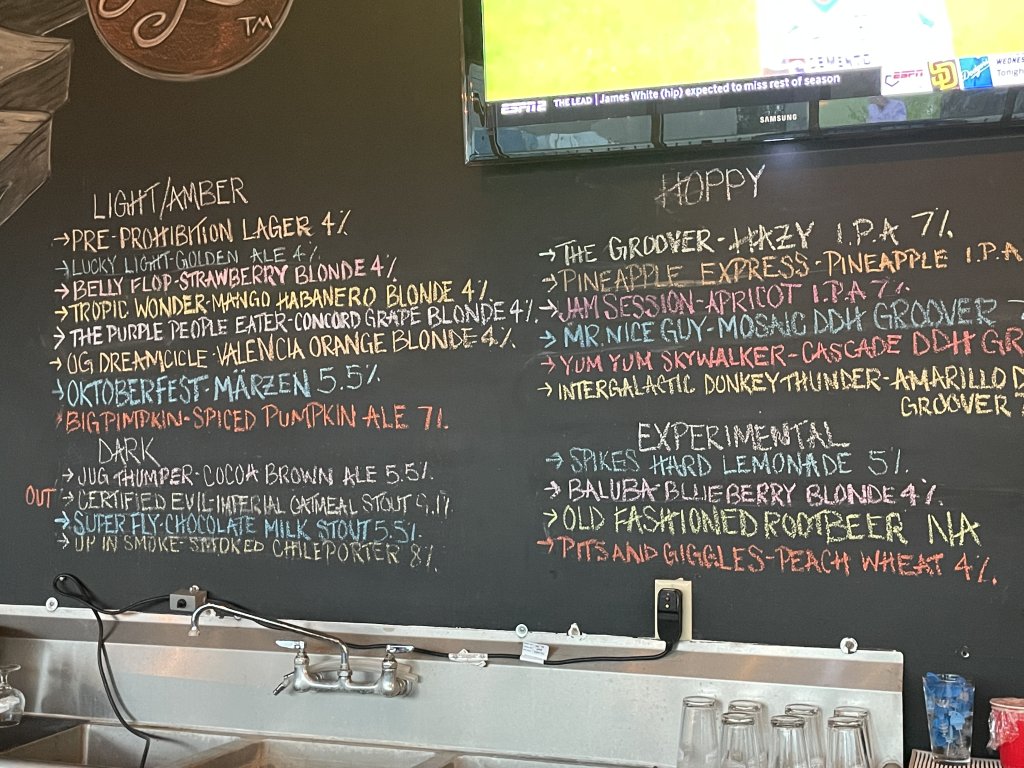 TM
CEMENTO
ESPN2 THE LEAD | James White (hip) expected to miss rest of season
ESPN SD Dodgers WEDNES
Tonigh
SAMSUNG
LIGHT/AMBER
→PRE-PROHIBITION LAGER 4%
→LUCKY LIGHT-GOLDEN ALE 4%
→BELLY FLOP-STRAWBERRY BLONDE 4%
→TROPIC WONDER-MANGO HABANERO BLONDE 4%
→THE PURPLE PEOPLE EATER-CONCORD GRAPE BLONDE 4%
→OG DREAMCICLE-VALENCIA ORANGE BLONDE 4%
→OKTOBERFEST-MÄRZEN 5.5%
→BIG PIMPKIN-SPICED PUMPKIN ALE 7%
DARK
→JUG THUMPER-COCOA BROWN ALE 5.5%
OUT →CERTIFIED EVIL-IMPERIAL OATMEAL STOUT 9.1%
→SUPER FLY-CHOCOLATE MILK STOUT 5.5%
→UP IN SMOKE-SMOKED CHILE PORTER 8%
HOPPY
→THE GROOVER-HAZY I.P.A 7%
→PINEAPPLE EXPRESS-PINEAPPLE I.P.A
→JAM SESSION-APRICOT I.P.A 7%
→MR. NICE GUY-MOSAIC DDH GROOVER 7
→YUM YUM SKYWALKER-CASCADE DDH GR
→INTERGALACTIC DONKEY THUNDER-AMARILLO D
GROOVER 7
EXPERIMENTAL
→SPIKES HARD LEMONADE 5%
→BALUBA-BLUEBERRY BLONDE 4%
→OLD FASHIONED ROOTBEER NA
→PITS AND GIGGLES-PEACH WHEAT 4%